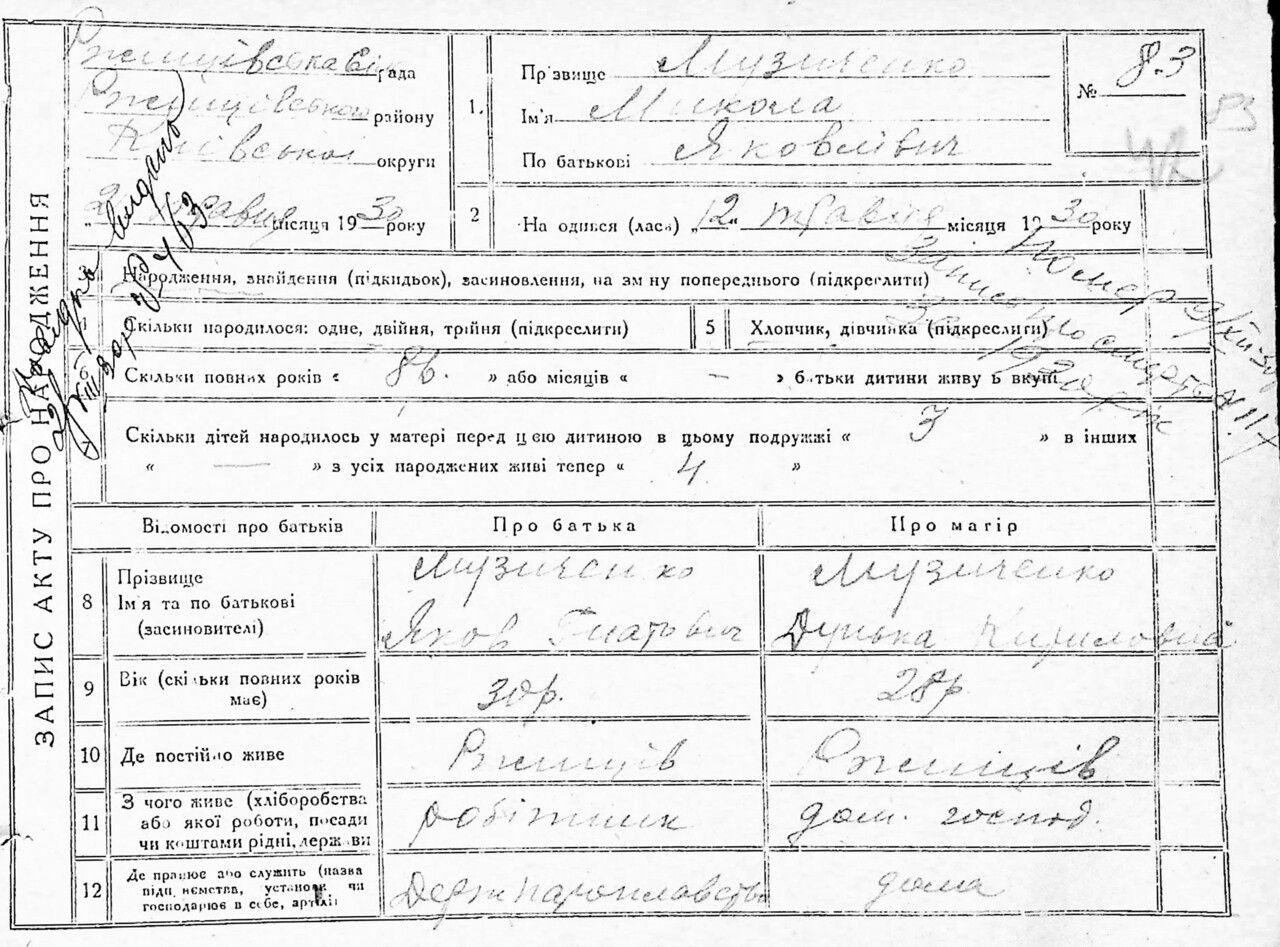 ЗАПИС АКТУ ПРО НАРОДЖЕННЯ
Ржищівська рада
Ржищівського району
Київської округи
травня місяця 1930 року
1. Прізвище Музиченко
Ім'я Микола
По батькові Яковлівич
№ 83
83
2 На одився (лася) „12" травня місяця 1930 року
3 Народження, знайдення (підкидьок), засиновлення, на зм ну попереднього (підкреслити)
4 Скільки народилося: одне, двійня, трійня (підкреслити)
5 Хлопчик, дівчинка (підкреслити)
6 Скільки повних років « 8 » або місяців « — » батьки дитини живу ь вкупі
Скільки дітей народилось у матері перед цією дитиною в цьому подружжі « 3 » в інших
« — » з усіх народжених живі тепер « 4 »
Помер 9/XII-30
Запис про смерть № 117
За 1930 рік
видано
Відомості про батьків
Про батька
Про матір
8 Прізвище
Ім'я та по батькові
(засиновителі)
Музиченко
Яков Гнатович
Музиченко
Дунька Кириловна
9 Вік (скільки повних років
має)
30р.
28р
10 Де постійно живе
Ржищів
Ржищів
11 З чого живе (хліборобства
або якої роботи, посади
чи коштами рідні, держави
робітник
дом. господ.
12 Де працює або служить (назва
підп иємства, установи чи
господарює в себе, артілі
Держпароплавство
дома